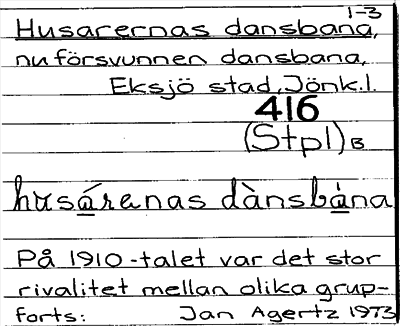 1-3
Husarernas dansbana,
nu försvunnen dansbana,
Eksjö stad, Jönk.l.
416
(Stpl) B
husárenas dànsbàna
På 1910-talet var det stor
rivalitet mellan olika grup-
forts: Jan Agertz 1973